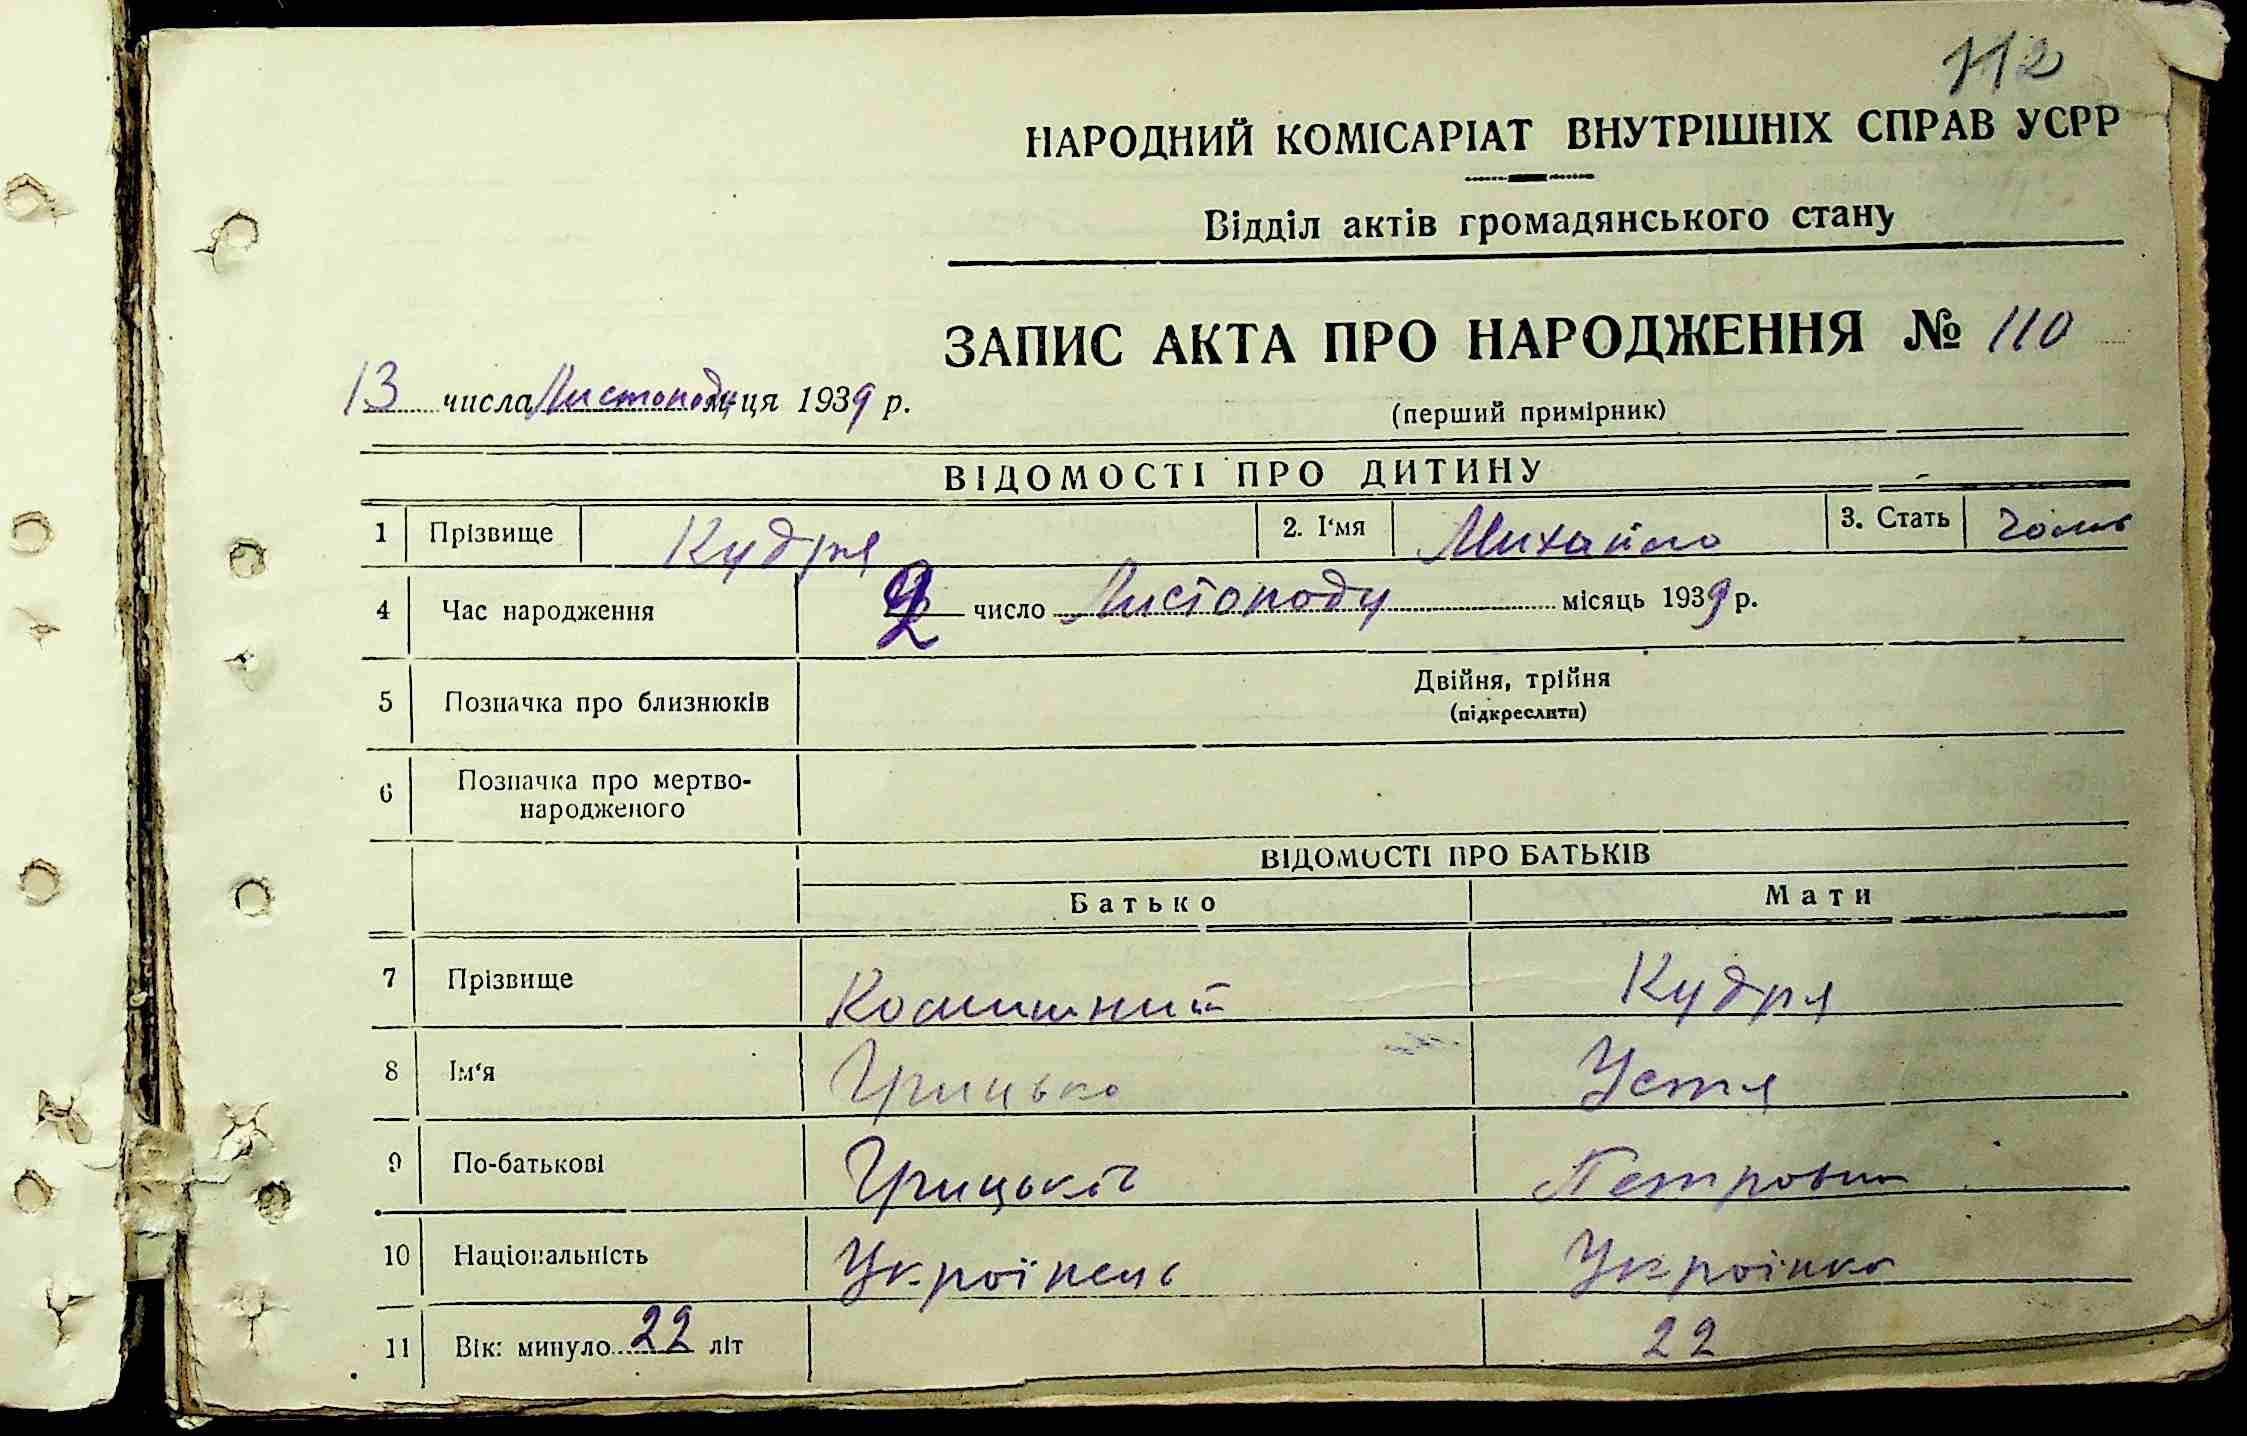 112
НАРОДНИЙ КОМІСАРІАТ ВНУТРІШНІХ СПРАВ УСРР
Відділ актів громадянського стану
ЗАПИС АКТА ПРО НАРОДЖЕННЯ № 110
13 числа Листоподу м-ця 1939 р.
(перший примірник)
ВІДОМОСТІ ПРО ДИТИНУ
1 Прізвище Кудря 2. І'мя Михайло 3. Стать чолов
4 Час народження 2 число Листоподу місяць 1939 р.
5 Позначка про близнюків Двійня, трійня
(підкреслити)
6 Позначка про мертво-
народженого
ВІДОМОСТІ ПРО БАТЬКІВ
Батько Мати
7 Прізвище Кудря
8 Ім'я Грицько Устя
9 По-батькові Грицьков Петровна
10 Національність Украінець Украінка
11 Вік: минуло 22 літ 22